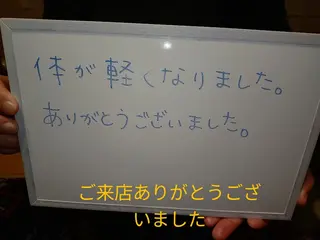 体が軽くなりました。
ありがとうございました。
ご来店ありがとうござ
いました